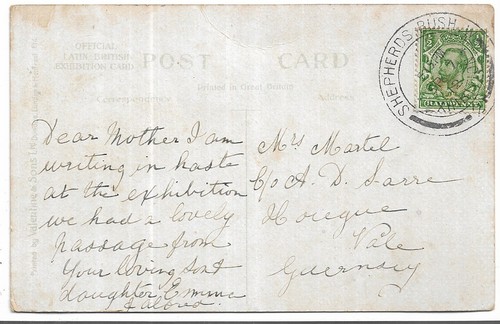 OFFICIAL
LATIN-BRITISH
EXHIBITION CARD
POST CARD
Correspondence
Printed in Great Britain
Dear Mother I am
writing in haste
at the exhibition
we had a lovely
passage from
Your loving son &
daughter, Emma
& alfred
Mrs Martel
C/o A. D. Sarre
Hougue
Vale
Guernsey
SHEPHERDS BUSH
HALFPENNY
Valentine & Sons